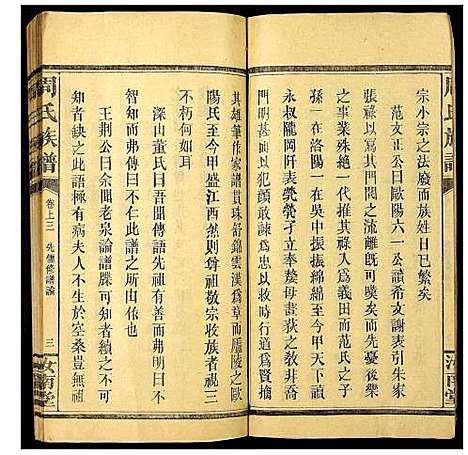 宗小宗之法廢而族姓日已繁矣
范文正公曰歐陽六一公讀希文謝表引朱家
張祿以寫其先譜之流離旣可嘆矣而先憂後樂
之事業殊絕一代其推祿入爲義田而范氏之子
孫一在洛陽一在吳中振振至今甲天下
永叔隴岡阡表煢煢孑立奉母夫人敎以敘非高
門明易以犯顏敢諫爲忠以奬引後進爲賢擒
其雄筆作家譜貫珠舒錦雲漢爲章而廬陵之歐
陽氏至今甲盛江西然則尊祖敬宗收族者視三
不朽何如耳
深山董氏曰吾聞傳語先祖有善而弗明曰不
智知而弗傳曰不仁此譜之所由依也
王荆公曰余聞老泉論譜牒可知者續之不可
知者缺之此語極有病夫人不生於空桑豈無祖
周氏族譜
卷上三
先儒修譜論
三
汝南堂
周氏族譜
汝南堂